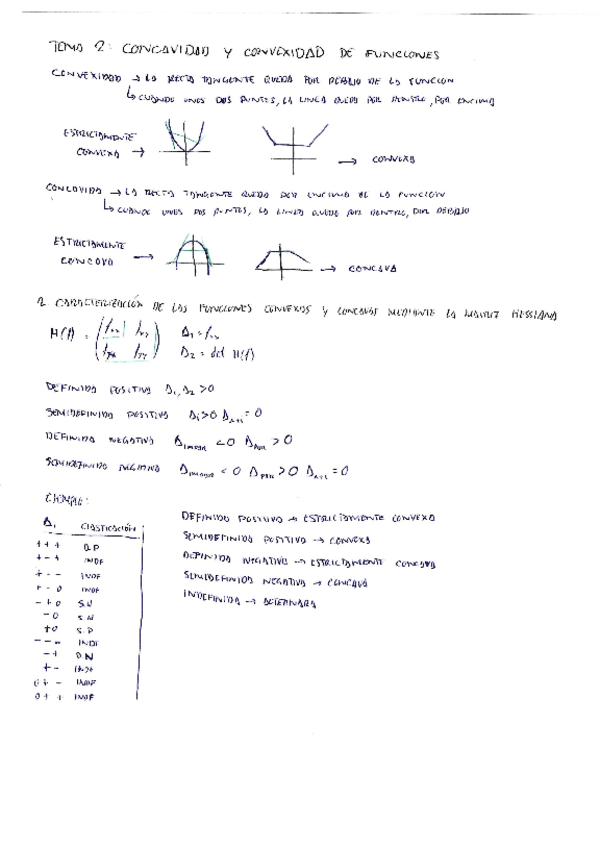 TEMA 2: CONCAVIDAD Y CONVEXIDAD DE FUNCIONES
CONVEXIDAD → LA RECTA TANGENTE QUEDA POR DEBAJO DE LA FUNCIÓN
↳ CUANDO UNES DOS PUNTOS, LA LINEA QUEDA POR DENTRO, POR ENCIMA
ESTRICTAMENTE
CONVEXA →
→ CONVEXA
CONCAVIDAD → LA RECTA TANGENTE QUEDA POR ENCIMA DE LA FUNCIÓN
↳ CUANDO UNES DOS PUNTOS, LA LINEA QUEDA POR DENTRO, POR DEBAJO
ESTRICTAMENTE
CONCAVA →
→ CONCAVA
2. CARACTERIZACIÓN DE LAS FUNCIONES CONVEXAS Y CONCAVAS MEDIANTE LA MATRIZ HESSIANA
H(f) = (fxx fxy Δ1 = fxx
fyx fyy) Δ2 = det H(f)
DEFINIDA POSITIVA Δ1, Δ2 > 0
SEMIDEFINIDA POSITIVA Δi > 0 Δn+1 = 0
DEFINIDA NEGATIVA Δimpar < 0 Δpar > 0
SEMIDEFINIDA NEGATIVA Δimpar < 0 Δpar > 0 Δn+1 = 0
EJEMPLO:
Δi CLASIFICACIÓN
+++ D.P
+-+ INDF
+-- INDF
+-0 INDF
-+0 S.N
-0 S.N
+0 S.P
--- INDF
-+ D.N
+- INDF
0+- INDF
0++ INDF
DEFINIDA POSITIVA → ESTRICTAMENTE CONVEXA
SEMIDEFINIDA POSITIVA → CONVEXA
DEFINIDA NEGATIVA → ESTRICTAMENTE CONCAVA
SEMIDEFINIDA NEGATIVA → CONCAVA
INDEFINIDA →